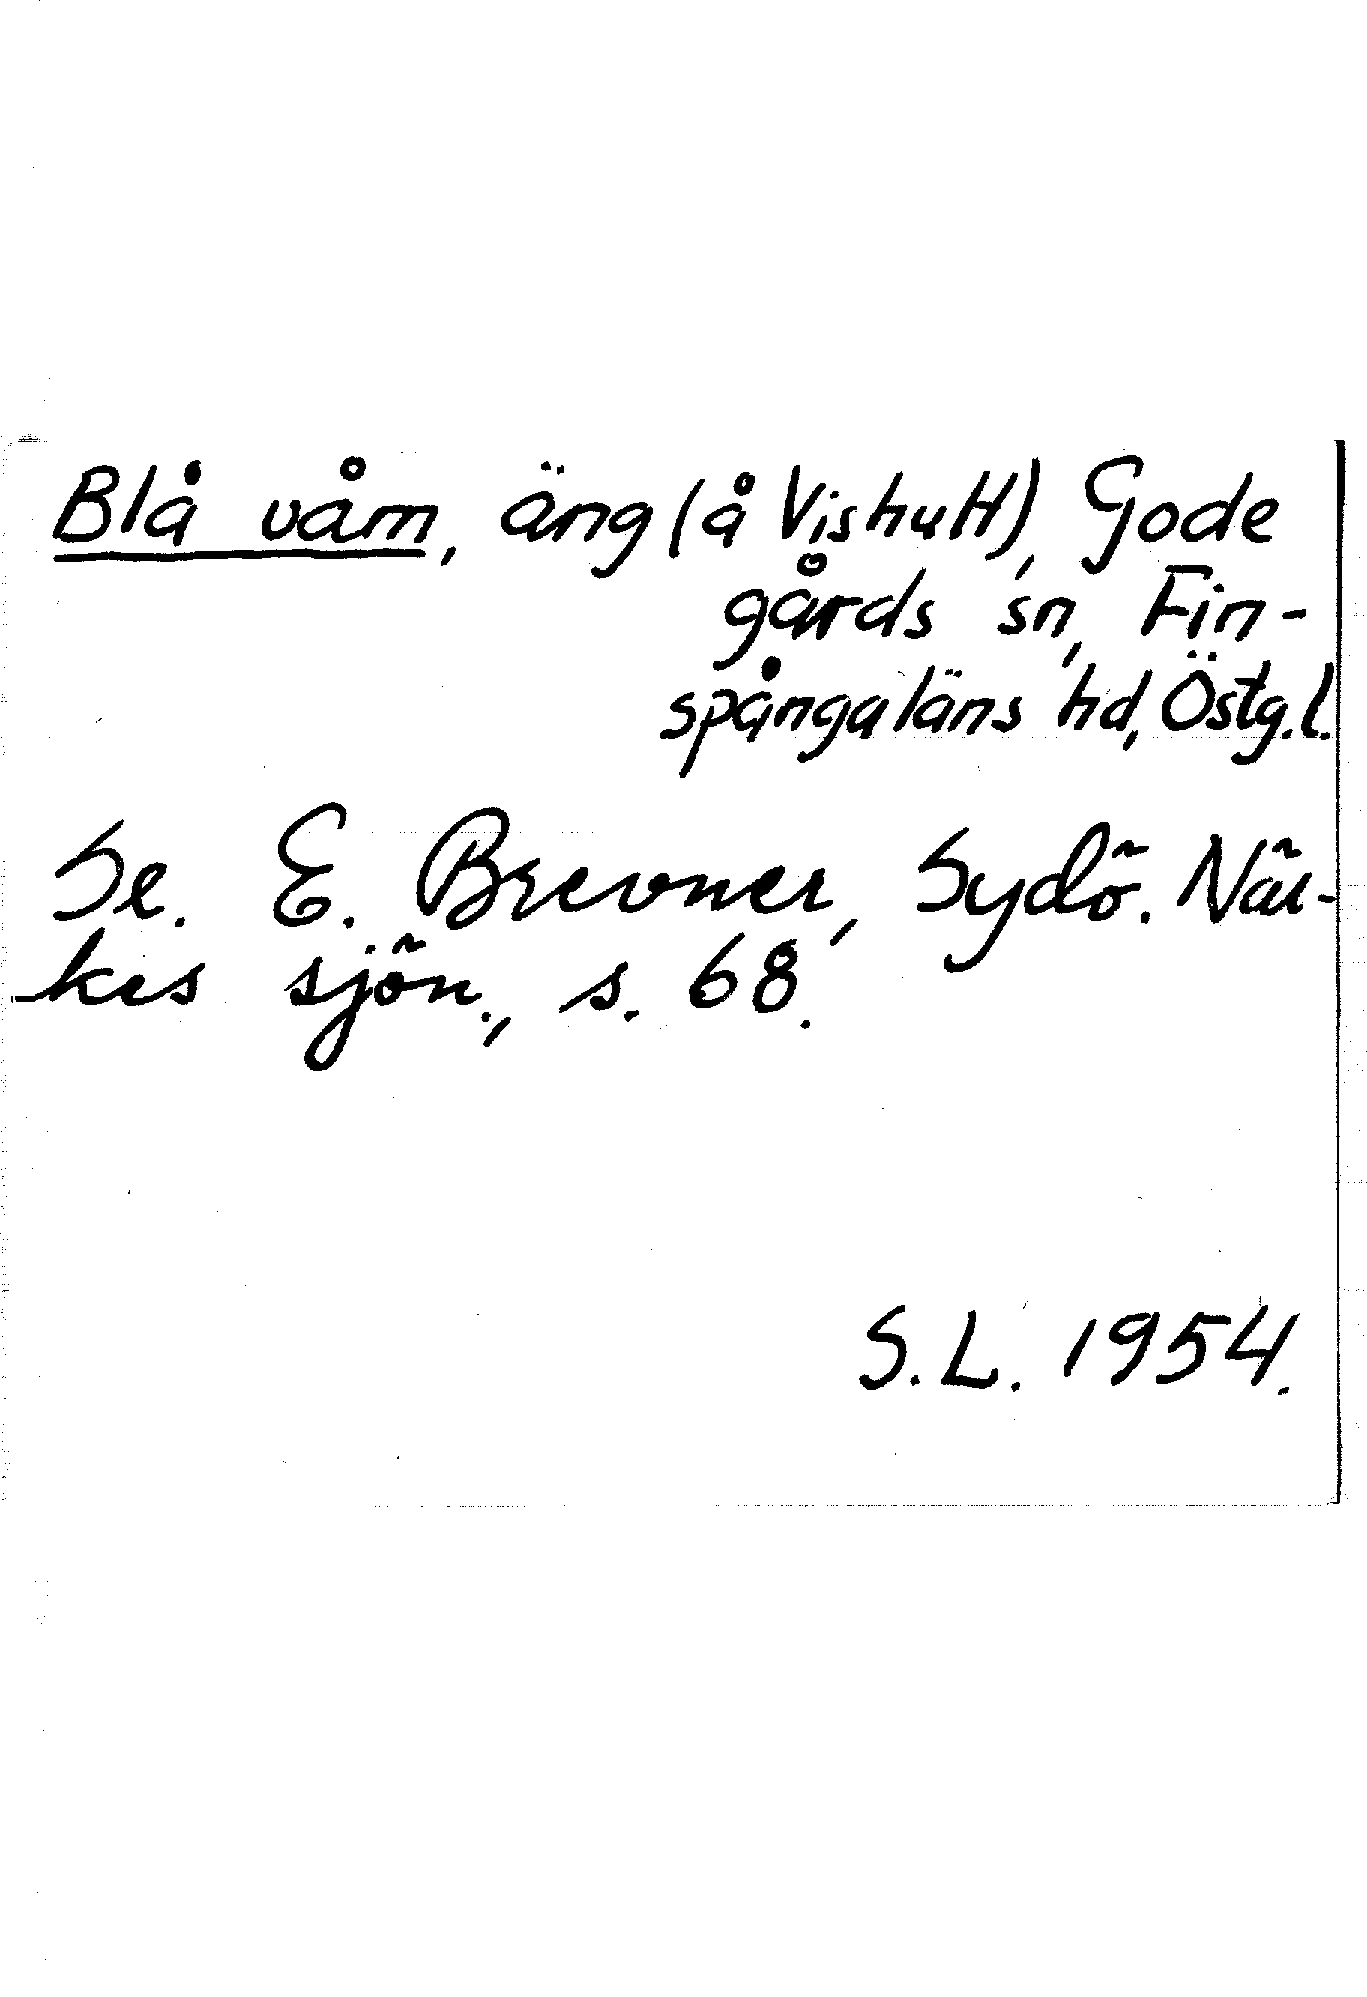 Blå våm, äng (å Vishult), Gode
gårds sn, Fin-
spångaläns hd, Östg.l.
Se. E. Brevner, Sydö. När-
kes sjön., s. 68.
S.L. 1954.